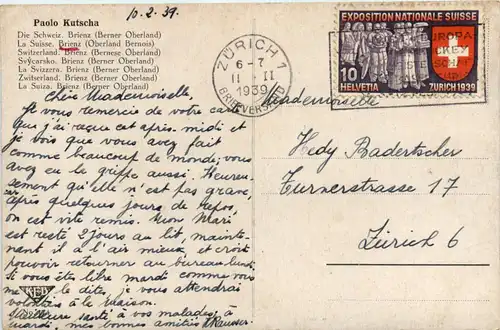 10.2.39.
Paolo Kutscha
Die Schweiz. Brienz (Berner Oberland)
La Suisse. Brienz (Oberland Bernois)
Switzerland. Brienz (Bernese Oberland)
Švýcarsko. Brienz (Berner Oberland)
La Svizzera. Brienz (Berner Oberland)
Zwitserland. Brienz (Berner Oberland)
La Suiza. Brienz (Berner Oberland)
ZÜRICH 1
6-7
11 II
1939
BRIEFVERSAND
EXPOSITION NATIONALE SUISSE
10
HELVETIA ZURICH 1939
Chère Mademoiselle
Je vous remercie de votre carte
que j'ai reçue cet après-midi et
je vois que vous avez fait
comme beaucoup de monde; vous
avez eu la griffe aussi. Heureu-
sement qu'elle n'est pas grave,
après quelques jours de repos,
on est vite remis. Mon Mari
est resté 2 jours au lit, mainte-
nant il a l'air mieux et croit
pouvoir retourner au bureau lundi.
Si vous êtes libre mardi comme vous
me le dite, je vous attendrai
volontiers à la maison.
Meilleure santé à vos malades, à
mardi, mes bonnes amitiés
Mademoiselle
Hedy Badertscher
Turnerstrasse 17
Zürich 6